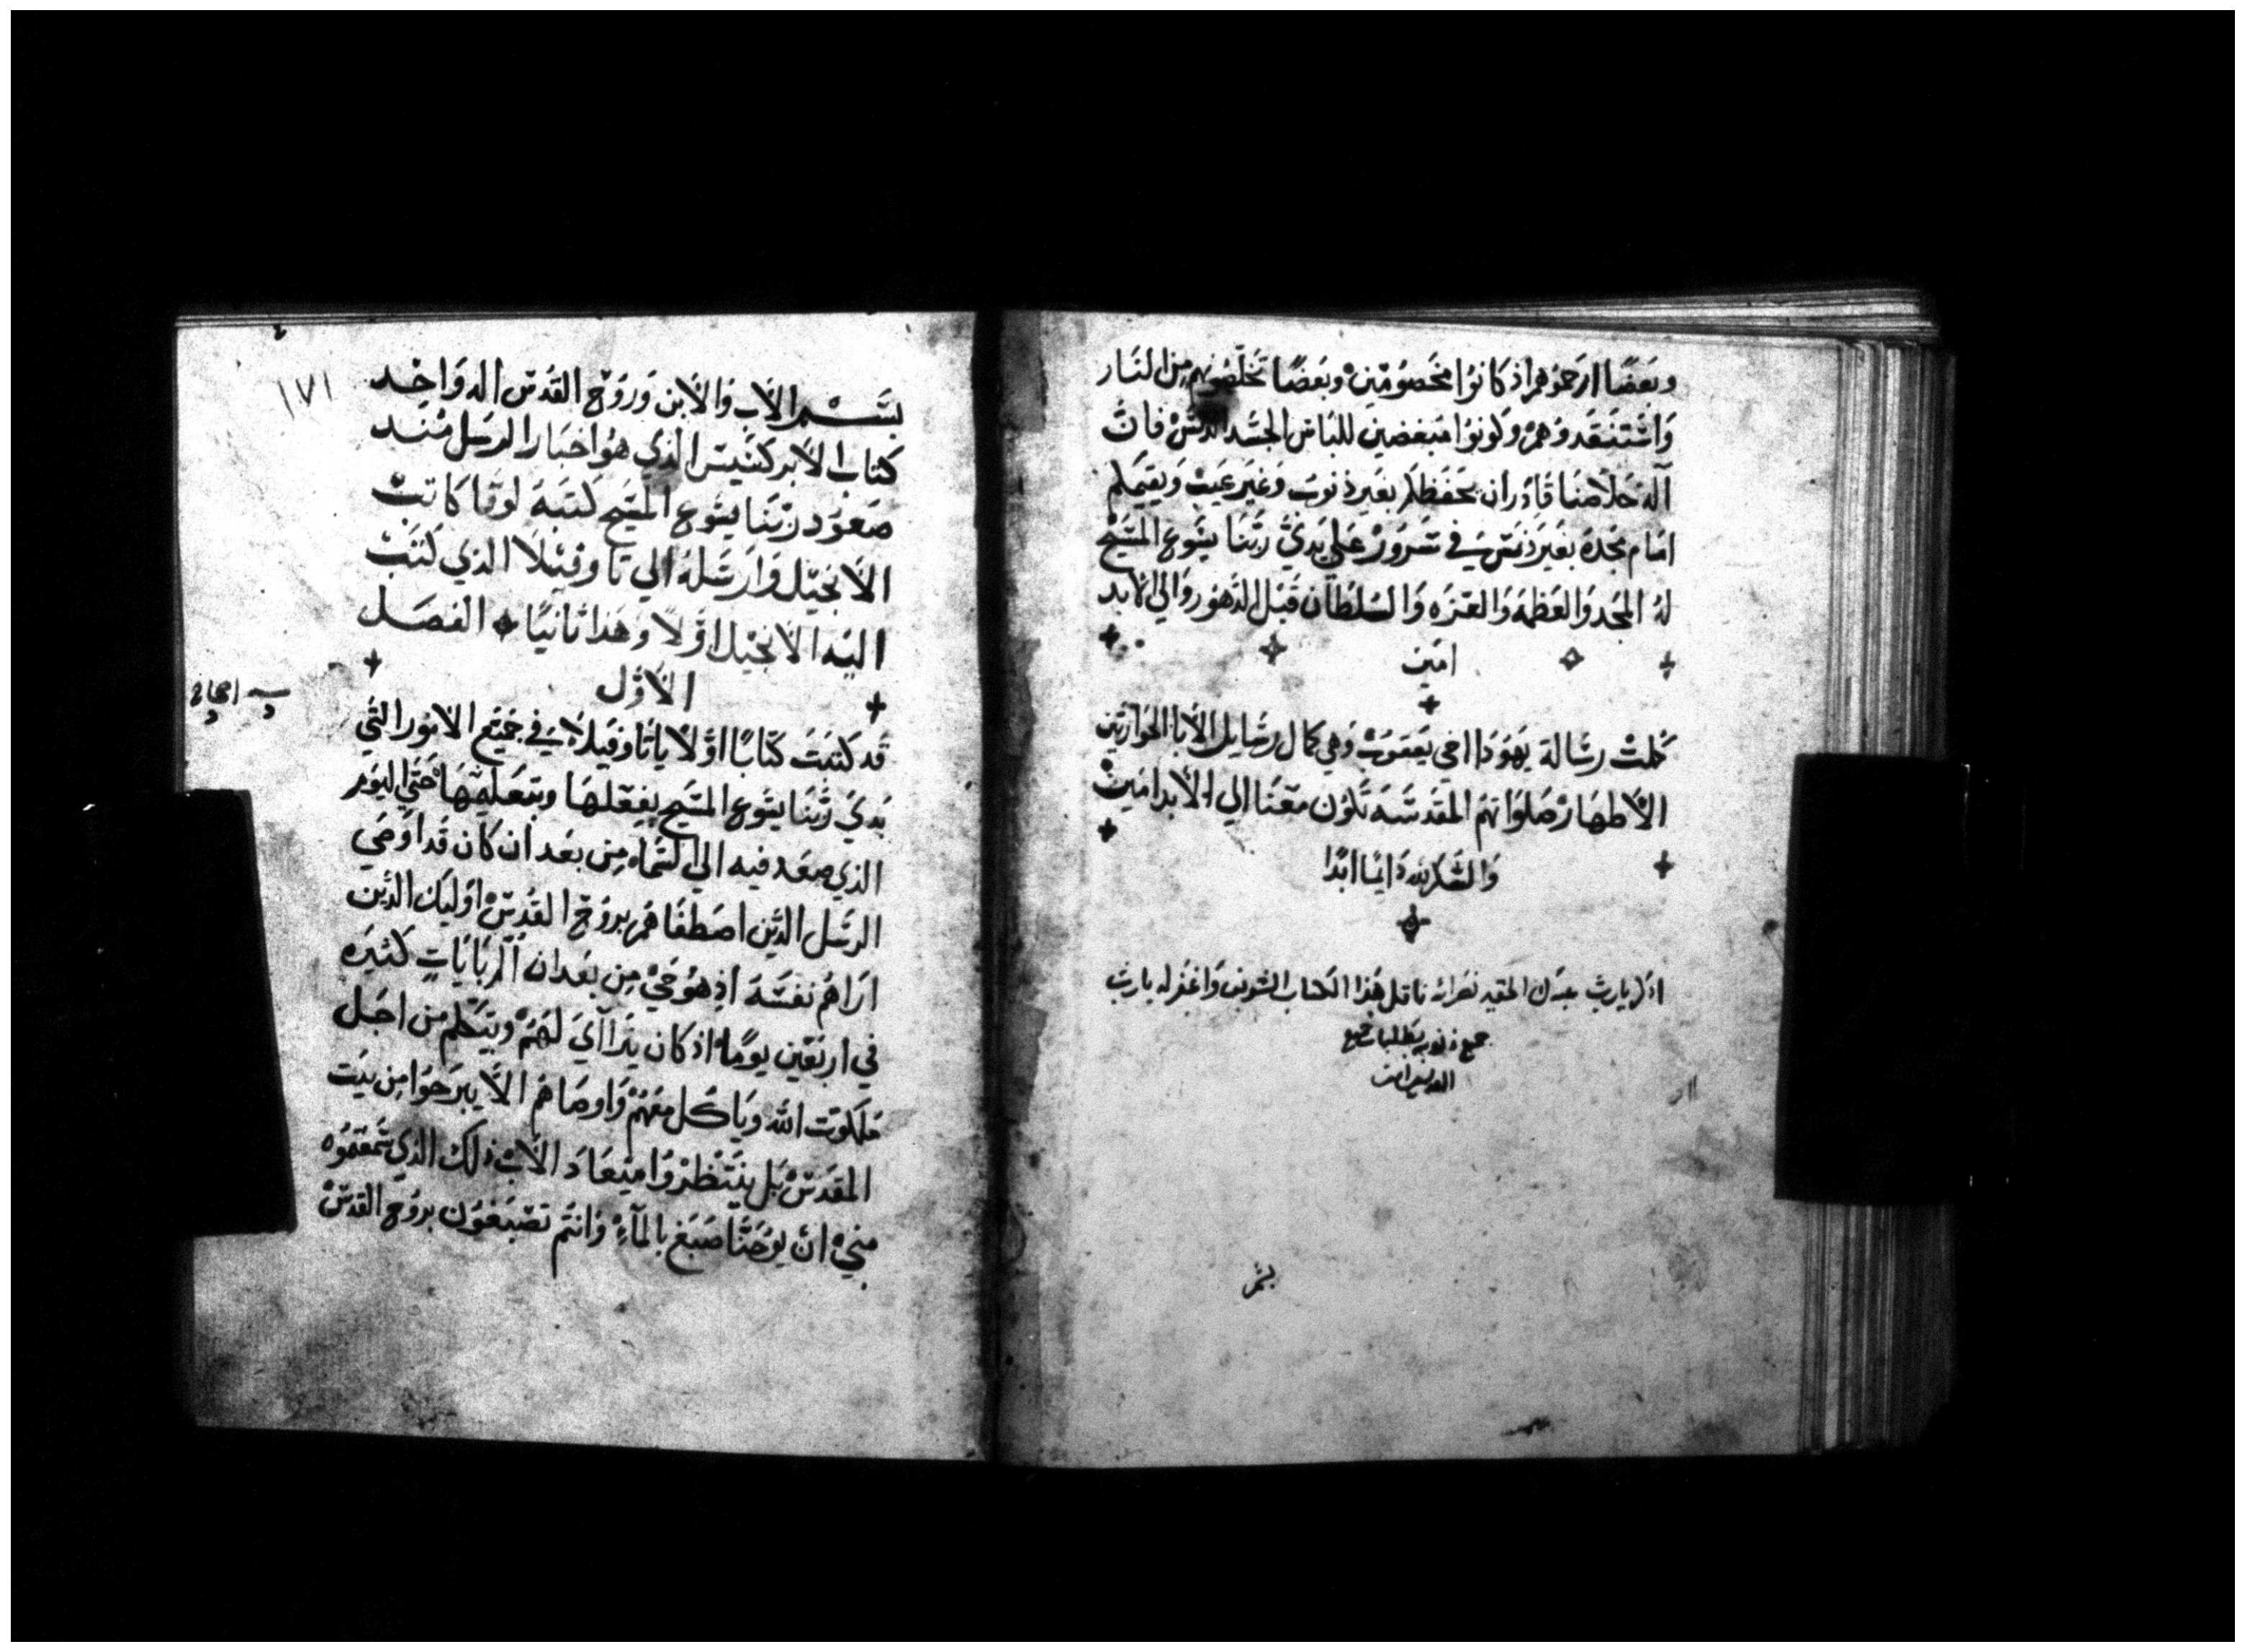 وبَعضًا ارحَموهم اذ كانوُا مخصُومّين وبَعضًا تخَلّصُونهم مِن النَار
وَاسْتنَقدوُهمْ وَكونوُا مَبغضين للبَاس الجسَد الدنسْ فانّ
آله خَلاصنَا قادر ان يحفَظكم بغير ذنوب وَغير عَيب وَيقيمكم
امَام مجَده بغير دنسَ في سَرورْ عَلي يَديْ ربّنَا يسُوع المسَيح
لهُ المجَد وَالعَظمه وَالعَزه وَالسُلطان قبَل الدهُور وَالي الابد
امَين
كملتْ رسَالة يهَودَا اخي يَعقوبْ وَهي كمال رسَايل الابَا الحوَاريّين
الاطهَارْ صَلوَاتهمُ المقدسَّه تَكون معَنا الي الأبد امَينْ
وَالشكر لله دَايمًا ابَدًا
اذكر يا رب عبدك الحقير نصرالله ناقل هَذا الكتاب الشريف وَاغفر له يا رب
جميع ذنوبه بطلبات جميع
القديسين امين
بسم
١٧١
بسَّم الاَب وَالاَبن وَروُحْ القدُسْ الهَ وَاحَد
كتاب الاَبركسَيسْ الذي هوُ اخبَار الرسَل مُنَد
صَعوُد ربّنَا يسُوع المسَيح كتَبهَ لوقا كاتبْ
الاَنجيَل وَارسَلهُ الي تاوفيَلا الذي كتَبْ
اليَه الاَنجيَل اوَّلاً وَهَذا ثانيًا الفصَل
الاوَّل
اصحاح
قد كتبَتُ كتابًا اوَّلاً يا تاوفيَلا في جَميَع الامُور التَّي
بَديَ ربّنَا يسُوع المسَيح يفعَلهَا وَيَعَلمّهَا حَتَّي اليَوم
الذي صعَد فيه الي السَمَاء مِن بعَد ان كان قدَ اوصَي
الرسَل الذين اصطفاهمُ بروُح القدُسْ اوليك الذين
ارَاهمُ نفسَهَ اذ هوُ حَيْ مِن بعَد ان آلم بايَاتٍ كثيَره
في اربَعّين يومًا اذ كان يتَراآيَ لهَمُ وَيتكلم من اجَل
ملكوت الله وَياكل معَهُمْ وَاوصَاهمُ الاّ يبرَحوُا مِن بيَت
المقدسْ بَل ينَتظرُوا ميعَادَ الاب ذلك الذي سَمعتموُه
منيْ ان يوُحَنّا صَبَغ بالمآءِ وَانتم تصَبغوُن بروُح القدسْ